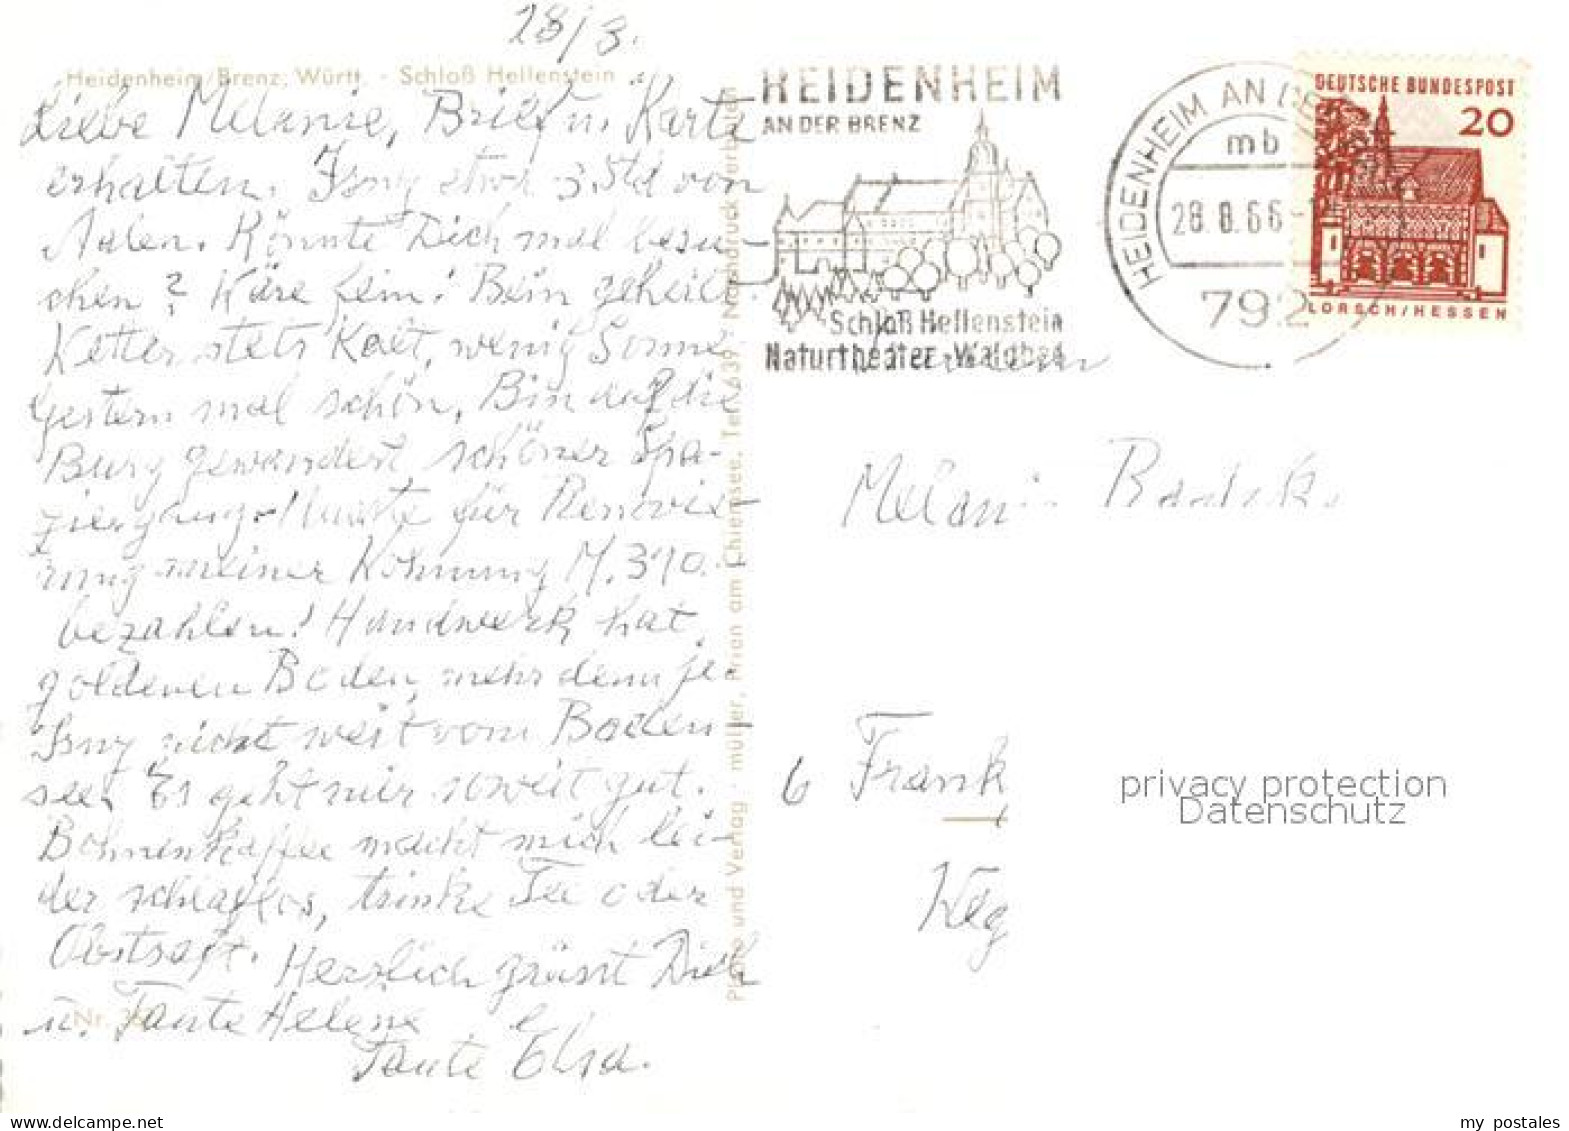 28/8.
Heidenheim/Brenz, Württ. - Schloß Hellenstein
Liebe Melanie, Brief u. Karte
erhalten. Isny etwa 3 Std von
Aalen. Könnte Dich mal besu-
chen? Wäre fein! Bin geheilt.
Wetter stets kalt, wenig Sonne
Gestern mal schön. Bin auf die
Burg gewandert, schöner Spa-
ziergang. Mußte für Renovie-
rung meiner Wohnung M. 310.-
bezahlen! Handwerk hat
goldenen Boden, mehr denn je.
Isny nicht weit vom Boden-
see. Es geht mir soweit gut.
Bohnenkaffee macht mich lei-
der schlaflos, trinke Tee oder
Obstsaft. Herzlich grüsst Dich
u. Tante Helene
Tante Elsa.
Nr.
Photo und Verlag · müller, Prien am Chiemsee, Tel. 639 · Nachdruck verboten
HEIDENHEIM
AN DER BRENZ
Schloß Hellenstein
Naturtheater-Waldbad
HEIDENHEIM AN DER
mb
28.8.66
792
DEUTSCHE BUNDESPOST
20
LORSCH/HESSEN
Melanie
6 Frank
Weg
privacy protection
Datenschutz
delcampe.net
my postales